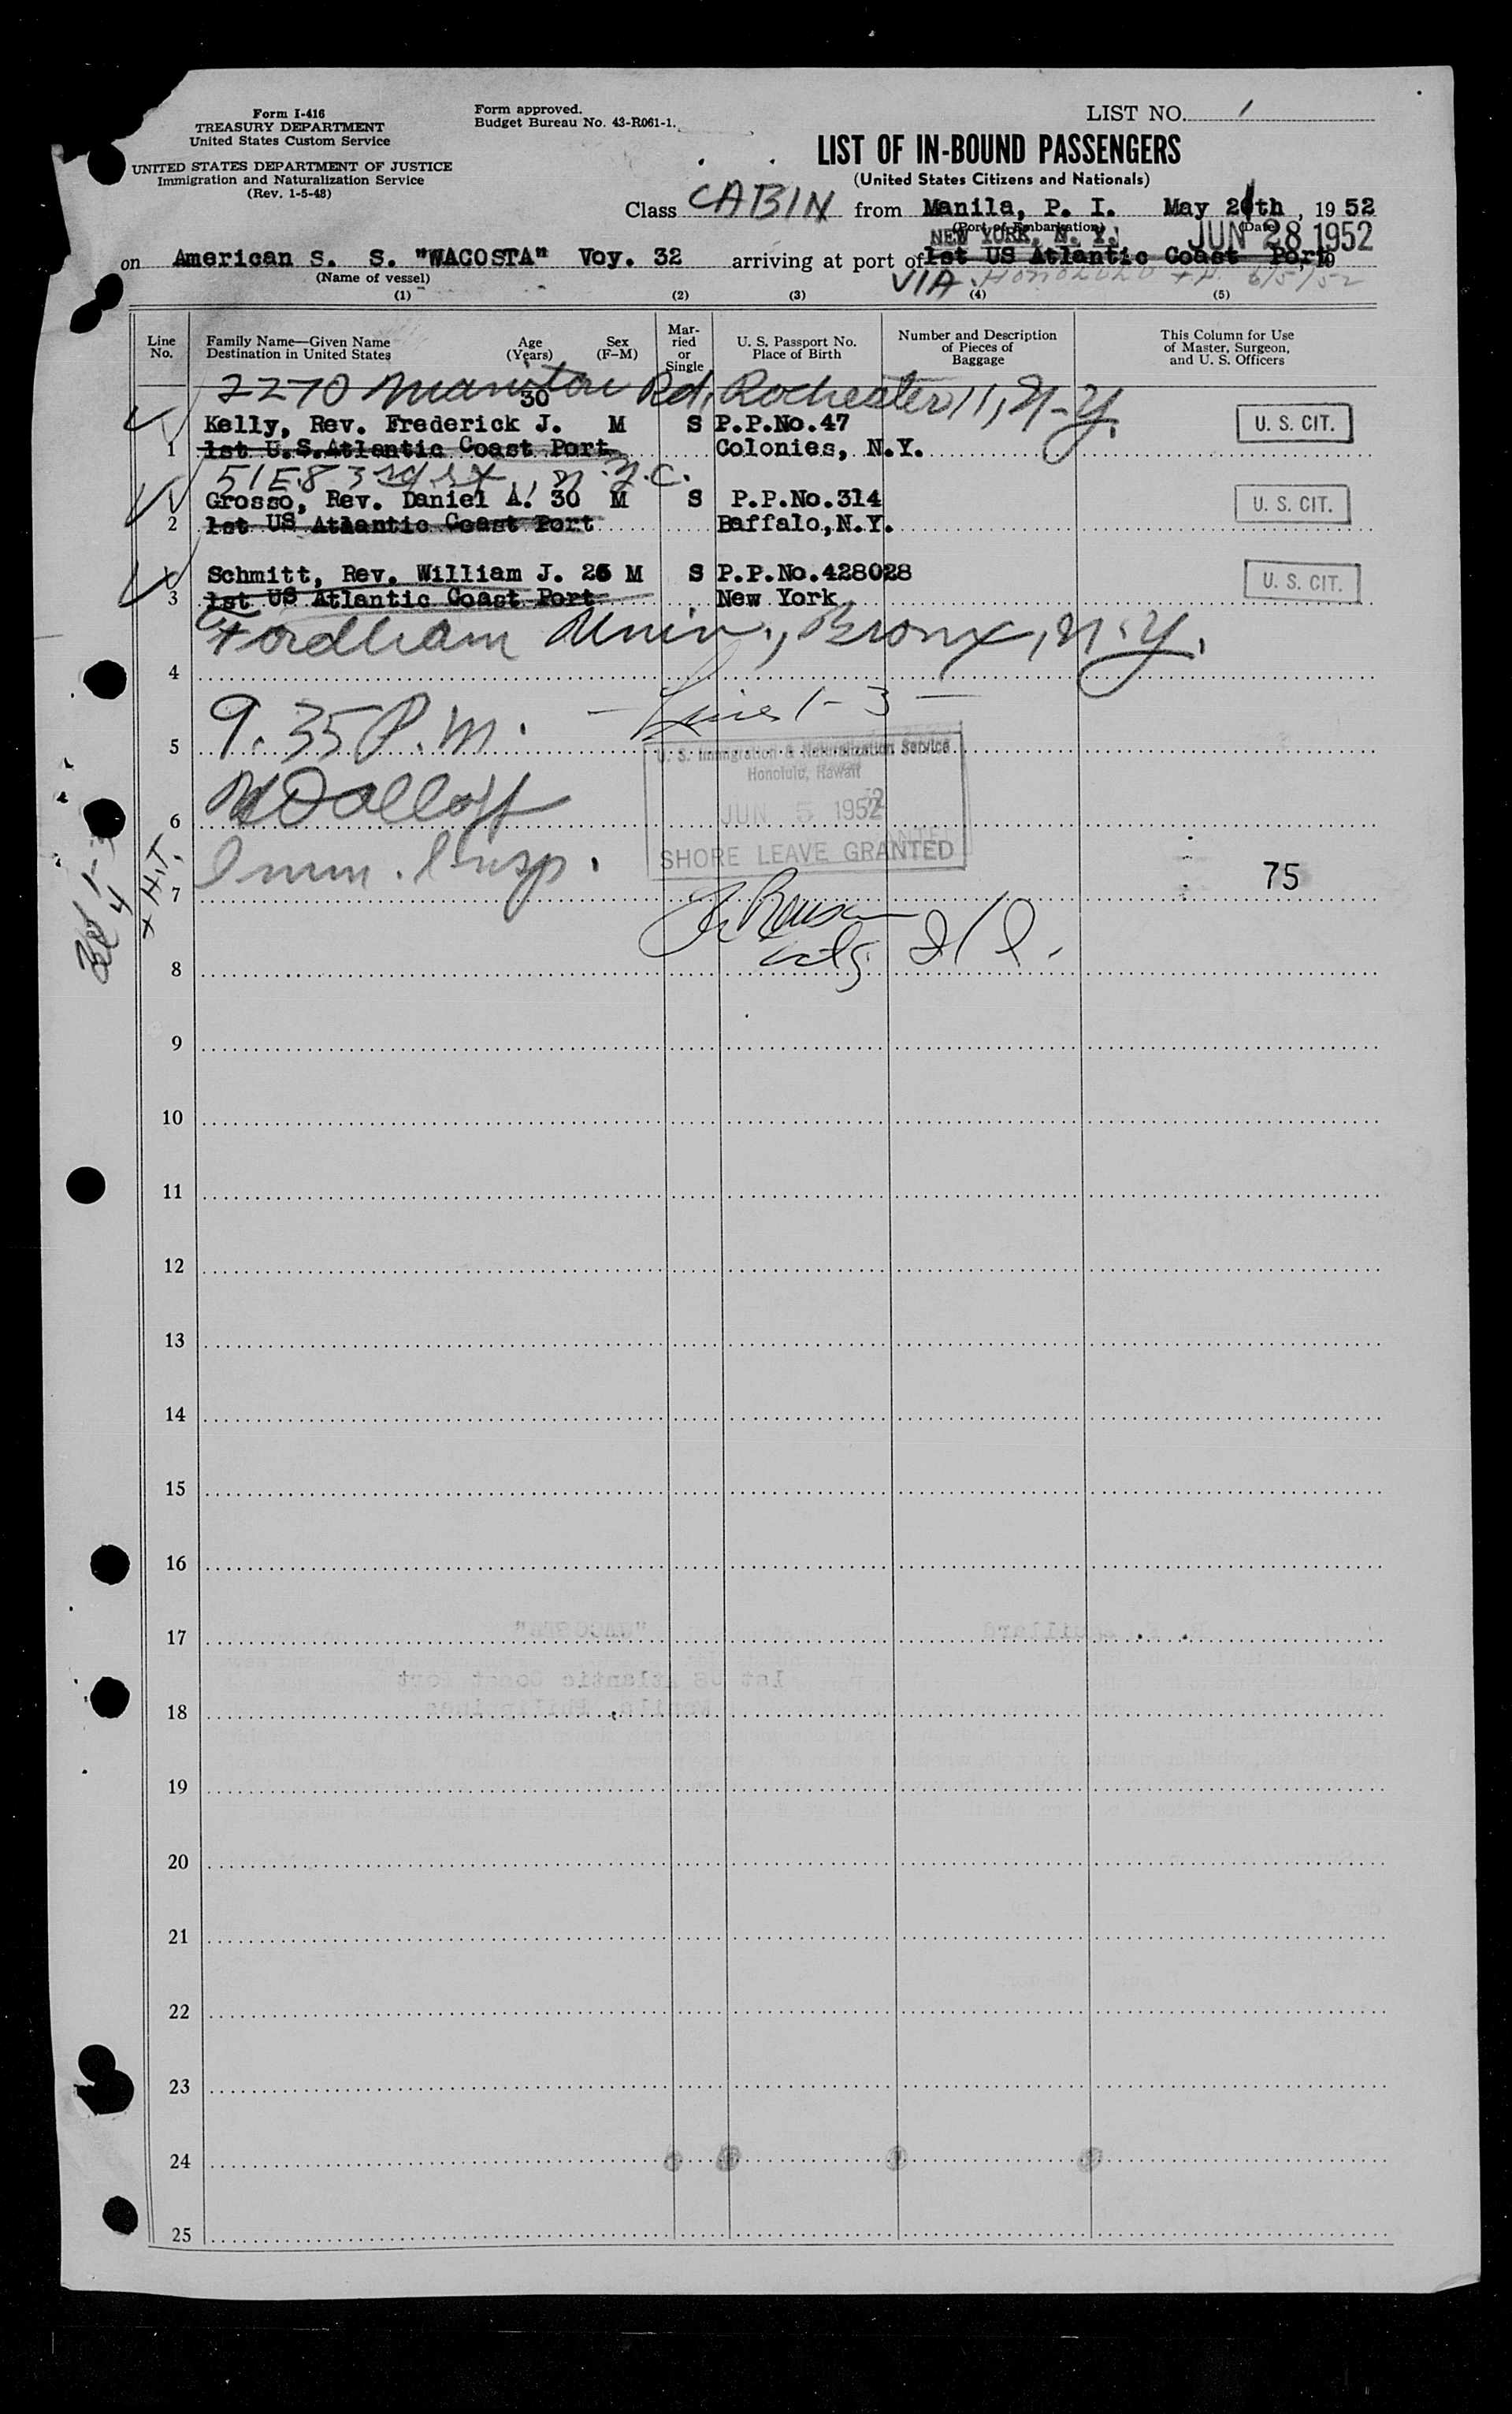 Form I-416
TREASURY DEPARTMENT
United States Custom Service
UNITED STATES DEPARTMENT OF JUSTICE
Immigration and Naturalization Service
(Rev. 1-5-48)
Form approved.
Budget Bureau No. 43-R061-1.
LIST NO. 1
LIST OF IN-BOUND PASSENGERS
(United States Citizens and Nationals)
Class CABIN from Manila, P. I. May 2 th, 1952
(Port of Embarkation) (Date)
NEW YORK, N. Y. JUN 28 1952
on American S. S. "WACOSTA" Voy. 32 arriving at port of 1st US Atlantic Coast Port, 19
(Name of vessel)
VIA Honolulu T.H. 6/5/52
(1) (2) (3) (4) (5)
Line No.
Family Name—Given Name
Destination in United States
Age (Years)
Sex (F–M)
Married or Single
U. S. Passport No.
Place of Birth
Number and Description of Pieces of Baggage
This Column for Use of Master, Surgeon, and U. S. Officers
2270 Manitou Rd, Rochester 11, N.Y.
30
Kelly, Rev. Frederick J. M S P.P.No.47 U. S. CIT.
1 1st U.S.Atlantic Coast Port Colonies, N.Y.
51 E. 83rd st, N.Y.C.
Grosso, Rev. Daniel A. 30 M S P.P.No.314 U. S. CIT.
2 1st US Atlantic Coast Port Baffalo,N.Y.
Schmitt, Rev. William J. 26 M S P.P.No.428028 U. S. CIT.
3 1st US Atlantic Coast Port New York
Fordham Univ., Bronx, N.Y.
4
9.35 P.M. — Lines 1-3 —
5
U. S. Immigration & Naturalization Service
Honolulu, Hawaii
JUN 5 1952
6
SHORE LEAVE GRANTED
Imm. Insp.
+ H.T.
7
75
8
9
10
11
12
13
14
15
16
17
18
19
20
21
22
23
24
25